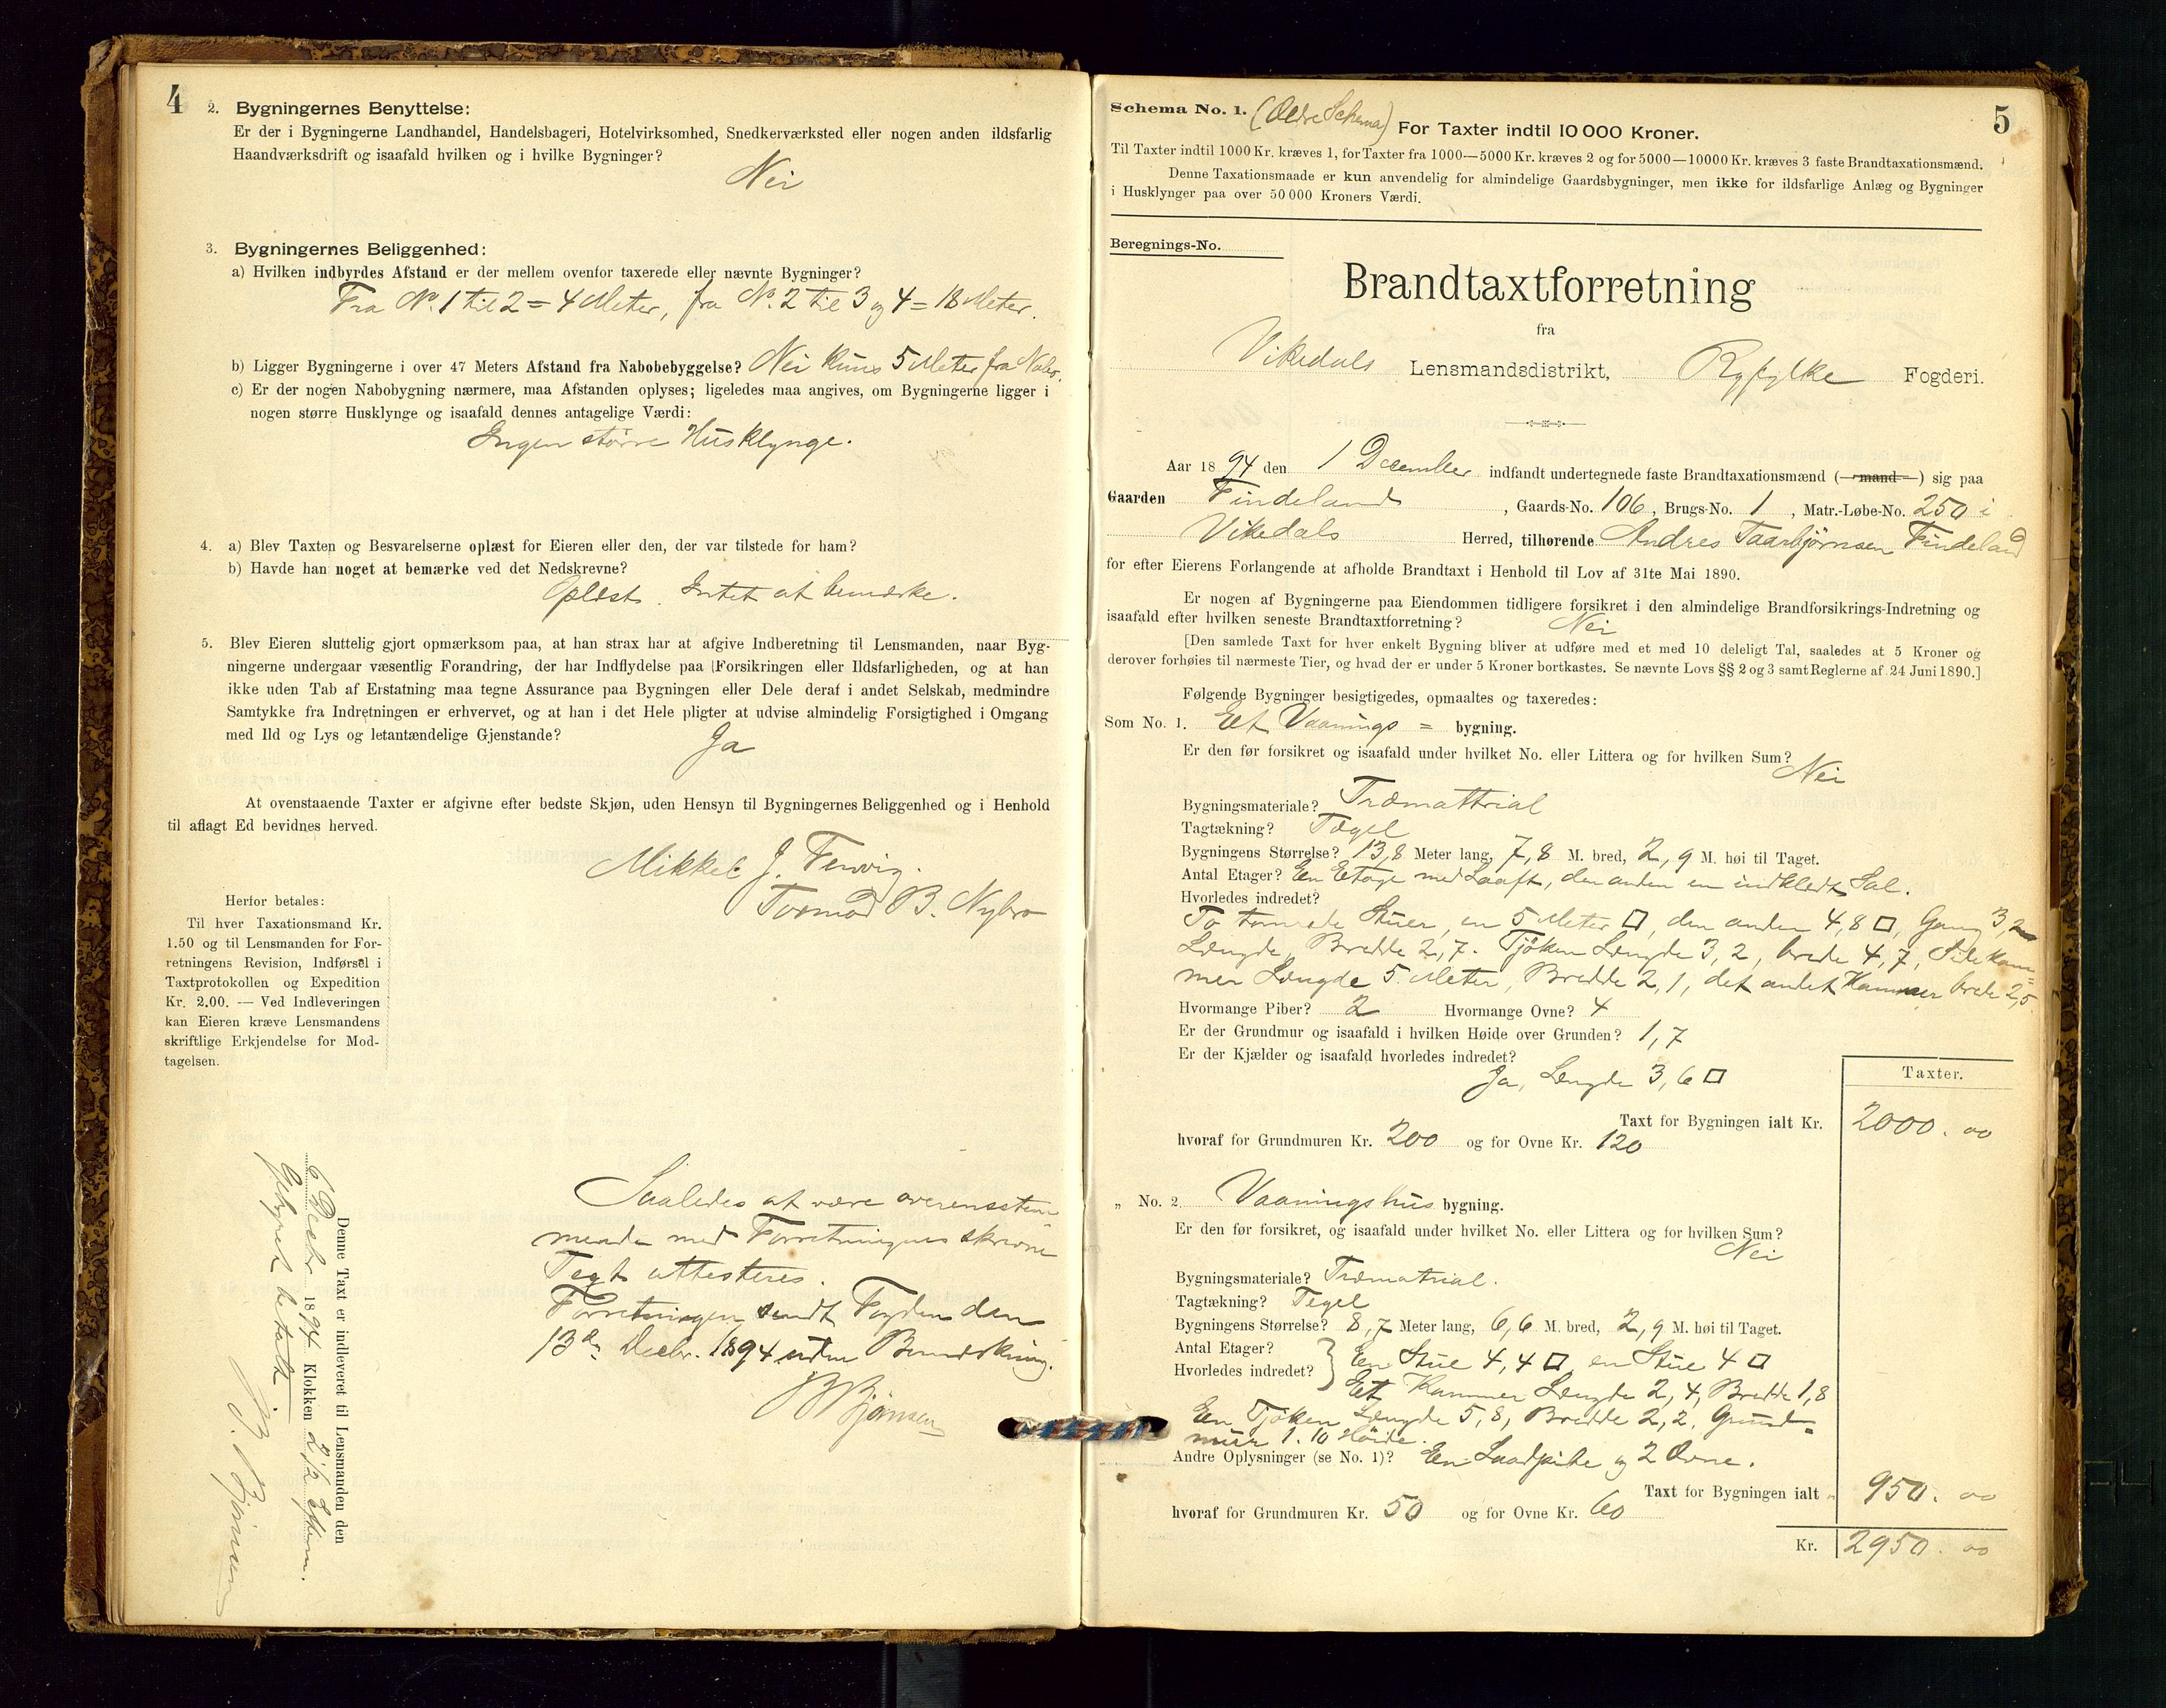 4
2. Bygningernes Benyttelse:
Er der i Bygningerne Landhandel, Handelsbageri, Hotelvirksomhed, Snedkerværksted eller nogen anden ildsfarlig
Haandværksdrift og isaafald hvilken og i hvilke Bygninger?
Nei
3. Bygningernes Beliggenhed:
a) Hvilken indbyrdes Afstand er der mellem ovenfor taxerede eller nævnte Bygninger?
Fra No. 1 til 2 = 4 Meter, fra No. 2 til 3 og 4 = 18 Meter.
b) Ligger Bygningerne i over 47 Meters Afstand fra Nabobebyggelse? Nei kuns 5 Meter fra Nabo.
c) Er der nogen Nabobygning nærmere, maa Afstanden oplyses; ligeledes maa angives, om Bygningerne ligger i
nogen større Husklynge og isaafald dennes antagelige Værdi:
Ingen større Husklynge.
4. a) Blev Taxten og Besvarelserne oplæst for Eieren eller den, der var tilstede for ham?
b) Havde han noget at bemærke ved det Nedskrevne?
Oplæst. Intet at bemærke.
5. Blev Eieren sluttelig gjort opmærksom paa, at han strax har at afgive Indberetning til Lensmanden, naar Byg-
ningerne undergaar væsentlig Forandring, der har Indflydelse paa Forsikringen eller Ildsfarligheden, og at han
ikke uden Tab af Erstatning maa tegne Assurance paa Bygningen eller Dele deraf i andet Selskab, medmindre
Samtykke fra Indretningen er erhvervet, og at han i det Hele pligter at udvise almindelig Forsigtighed i Omgang
med Ild og Lys og letantændelige Gjenstande?
Ja
At ovenstaaende Taxter er afgivne efter bedste Skjøn, uden Hensyn til Bygningernes Beliggenhed og i Henhold
til aflagt Ed bevidnes herved.
Mikkel J.
Tormod B. Nybro
Herfor betales:
Til hver Taxationsmand Kr.
1.50 og til Lensmanden for For-
retningens Revision, Indførsel i
Taxtprotokollen og Expedition
Kr. 2.00. — Ved Indleveringen
kan Eieren kræve Lensmandens
skriftlige Erkjendelse for Mod-
tagelsen.
Saaledes at være overensstem
mende med Forretningens skrevne
Text attesteres.
Forretningen sendt Fogden den
13de Decbr. 1894 uden Bemærkning.
B Bjønsen
Denne Taxt er indleveret til Lensmanden den
6 Decbr 1894 Klokken 2½ Efterm.
Gebyret betalt
B. Bjønsen
5
Schema No. 1. (Ældre Schema) For Taxter indtil 10 000 Kroner.
Til Taxter indtil 1000 Kr. kræves 1, for Taxter fra 1000—5000 Kr. kræves 2 og for 5000—10000 Kr. kræves 3 faste Brandtaxationsmænd.
Denne Taxationsmaade er kun anvendelig for almindelige Gaardsbygninger, men ikke for ildsfarlige Anlæg og Bygninger
i Husklynger paa over 50 000 Kroners Værdi.
Beregnings-No.
Brandtaxtforretning
fra
Vikedals Lensmandsdistrikt, Ryfylke Fogderi.
Aar 1894 den 1 December indfandt undertegnede faste Brandtaxationsmænd (mand) sig paa
Gaarden Findeland, Gaards-No. 106, Brugs-No. 1, Matr.-Løbe-No. 250 i
Vikedals Herred, tilhørende Andres Taarbjørnsen Findeland
for efter Eierens Forlangende at afholde Brandtaxt i Henhold til Lov af 31te Mai 1890.
Er nogen af Bygningerne paa Eiendommen tidligere forsikret i den almindelige Brandforsikrings-Indretning og
isaafald efter hvilken seneste Brandtaxtforretning? Nei
[Den samlede Taxt for hver enkelt Bygning bliver at udføre med et med 10 deleligt Tal, saaledes at 5 Kroner og
derover forhøies til nærmeste Tier, og hvad der er under 5 Kroner bortkastes. Se nævnte Lovs §§ 2 og 3 samt Reglerne af 24 Juni 1890.]
Følgende Bygninger besigtigedes, opmaaltes og taxeredes:
Som No. 1. Et Vaanings = bygning.
Er den før forsikret og isaafald under hvilket No. eller Littera og for hvilken Sum?
Nei
Bygningsmateriale? Træmattrial
Tagtækning? Tægel
Bygningens Størrelse? 13,8 Meter lang, 7,8 M. bred, 2,9 M. høi til Taget.
Antal Etager? Een Etage med Laaft, den anden en indklædt Sal.
Hvorledes indredet?
To tømrede Stuer, en 5 Meter □, den anden 4,8 □, Gang 3,2
Længde, Bredde 2,7. Tjøken Længde 3,2, brede 4,7, Silekam=
mer Længde 5 Meter, Bredde 2,1, det andet Kammer brede 2,5
Hvormange Piber? 2 Hvormange Ovne? 4
Er der Grundmur og isaafald i hvilken Høide over Grunden? 1,7
Er der Kjælder og isaafald hvorledes indredet?
Ja, Længde 3,6 □
Taxter.
Taxt for Bygningen ialt Kr. 2000. 00
hvoraf for Grundmuren Kr. 200 og for Ovne Kr. 120
„ No. 2. Vaaningshus bygning.
Er den før forsikret, og isaafald under hvilket No. eller Littera og for hvilken Sum?
Nei
Bygningsmateriale? Træmatrial.
Tagtækning? Tegel
Bygningens Størrelse? 8,7 Meter lang, 6,6 M. bred, 2,9 M. høi til Taget.
Antal Etager?
Hvorledes indredet? } Een Stue 4,4 □, en Stue 4 □
Et Kammer Længde 2,4, Bredde 1,8
Een Tjøken Længde 5,8, Bredde 2,2, Grund=
mur 1.10 Høide.
Andre Oplysninger (se No. 1)? Een Laadpibe og 2 Ovne.
Taxt for Bygningen ialt „ 950. 00
hvoraf for Grundmuren Kr. 50 og for Ovne Kr. 60
Kr. 2950. 00